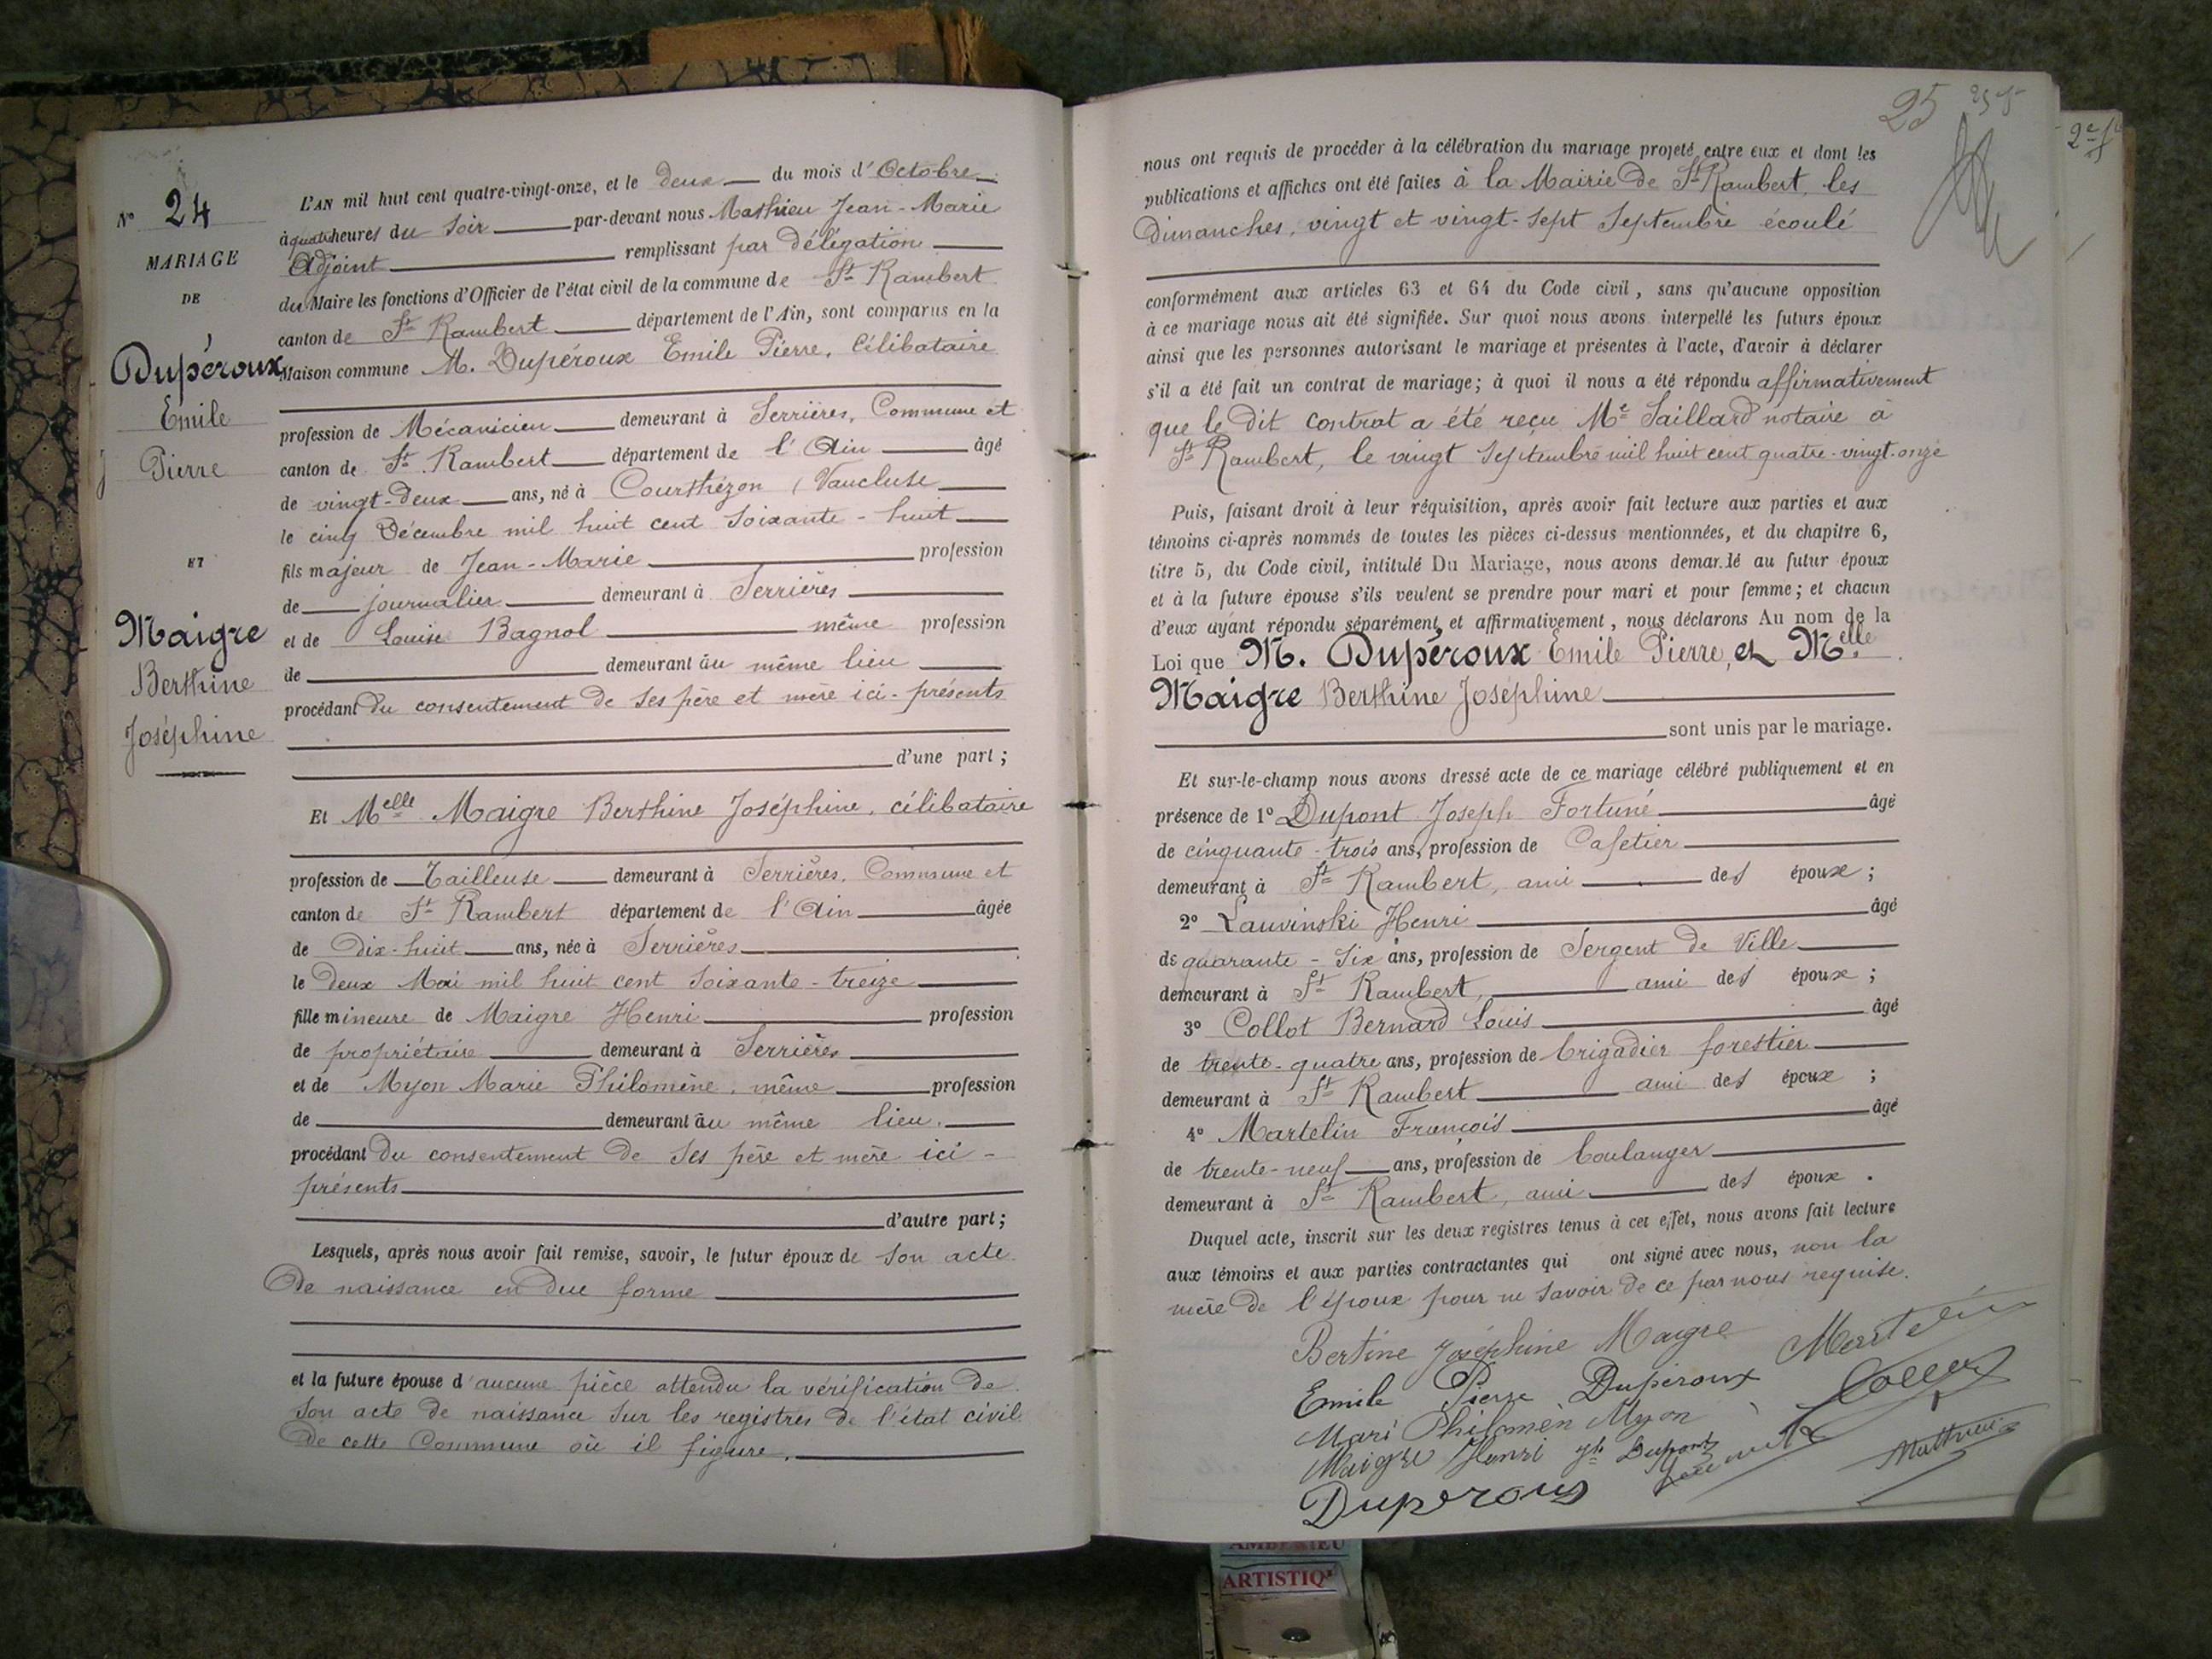 N° 24
MARIAGE
DE
Dupéroux
Emile
Pierre
ET
Maigre
Berthine
Joséphine
L'AN mil huit cent quatre-vingt-onze, et le deux du mois d'Octobre
à quatre heures du soir par-devant nous Mathieu Jean-Marie
Adjoint remplissant par délégation
du Maire les fonctions d'Officier de l'état civil de la commune de St Rambert
canton de St Rambert département de l'Ain, sont comparus en la
Maison commune M. Dupéroux Emile Pierre, Célibataire
profession de Mécanicien demeurant à Serrières, Commune et
canton de St Rambert département de l'Ain âgé
de vingt-deux ans, né à Courthézon (Vaucluse
le cinq Décembre mil huit cent soixante-huit
fils majeur de Jean-Marie profession
de journalier demeurant à Serrières
et de Louise Bagnol même profession
de demeurant au même lieu
procédant du consentement de ses père et mère ici-présents
d'une part ;
Et Melle Maigre Berthine Joséphine, célibataire
profession de Tailleuse demeurant à Serrières, Commune et
canton de St Rambert département de l'Ain âgée
de dix-huit ans, née à Serrières
le deux Mai mil huit cent soixante-treize
fille mineure de Maigre Henri profession
de propriétaire demeurant à Serrières
et de Myon Marie Philomène, même profession
de demeurant au même lieu.
procédant du consentement de ses père et mère ici-
présents
d'autre part ;
Lesquels, après nous avoir fait remise, savoir, le futur époux de son acte
de naissance en due forme
et la future épouse d'aucune pièce attendu la vérification de
son acte de naissance sur les registres de l'état civil
de cette Commune où il figure.
25
2e f
nous ont requis de procéder à la célébration du mariage projeté entre eux et dont les
publications et affiches ont été faites à la Mairie de St Rambert, les
Dimanches, vingt et vingt-sept Septembre écoulé
conformément aux articles 63 et 64 du Code civil, sans qu'aucune opposition
à ce mariage nous ait été signifiée. Sur quoi nous avons interpellé les futurs époux
ainsi que les personnes autorisant le mariage et présentes à l'acte, d'avoir à déclarer
s'il a été fait un contrat de mariage ; à quoi il nous a été répondu affirmativement
que le dit contrat a été reçu Me Saillard notaire à
St Rambert, le vingt Septembre mil huit cent quatre-vingt-onze
Puis, faisant droit à leur réquisition, après avoir fait lecture aux parties et aux
témoins ci-après nommés de toutes les pièces ci-dessus mentionnées, et du chapitre 6,
titre 5, du Code civil, intitulé Du Mariage, nous avons demandé au futur époux
et à la future épouse s'ils veulent se prendre pour mari et pour femme ; et chacun
d'eux ayant répondu séparément et affirmativement, nous déclarons Au nom de la
Loi que M. Dupéroux Emile Pierre, et Melle
Maigre Berthine Joséphine
sont unis par le mariage.
Et sur-le-champ nous avons dressé acte de ce mariage célébré publiquement et en
présence de 1° Dupont Joseph Fortuné âgé
de cinquante-trois ans, profession de Cafetier
demeurant à St Rambert, ami des époux ;
2° Lauvinski Henri âgé
de quarante-six ans, profession de Sergent de Ville
demeurant à St Rambert, ami des époux ;
3° Collot Bernard Louis âgé
de trente-quatre ans, profession de brigadier forestier
demeurant à St Rambert ami des époux ;
4° Martelin François âgé
de trente-neuf ans, profession de boulanger
demeurant à St Rambert, ami des époux.
Duquel acte, inscrit sur les deux registres tenus à cet effet, nous avons fait lecture
aux témoins et aux parties contractantes qui ont signé avec nous, non la
mère de l'époux pour ne savoir de ce par nous requise.
Bertine Joséphine Maigre Martelin
Emile Pierre Duperoux Collot
Mari Philomèn Myon
Maigre Henri jh Dupont
Mathieu
Duperoux
AMBERIEU
ARTISTIQ